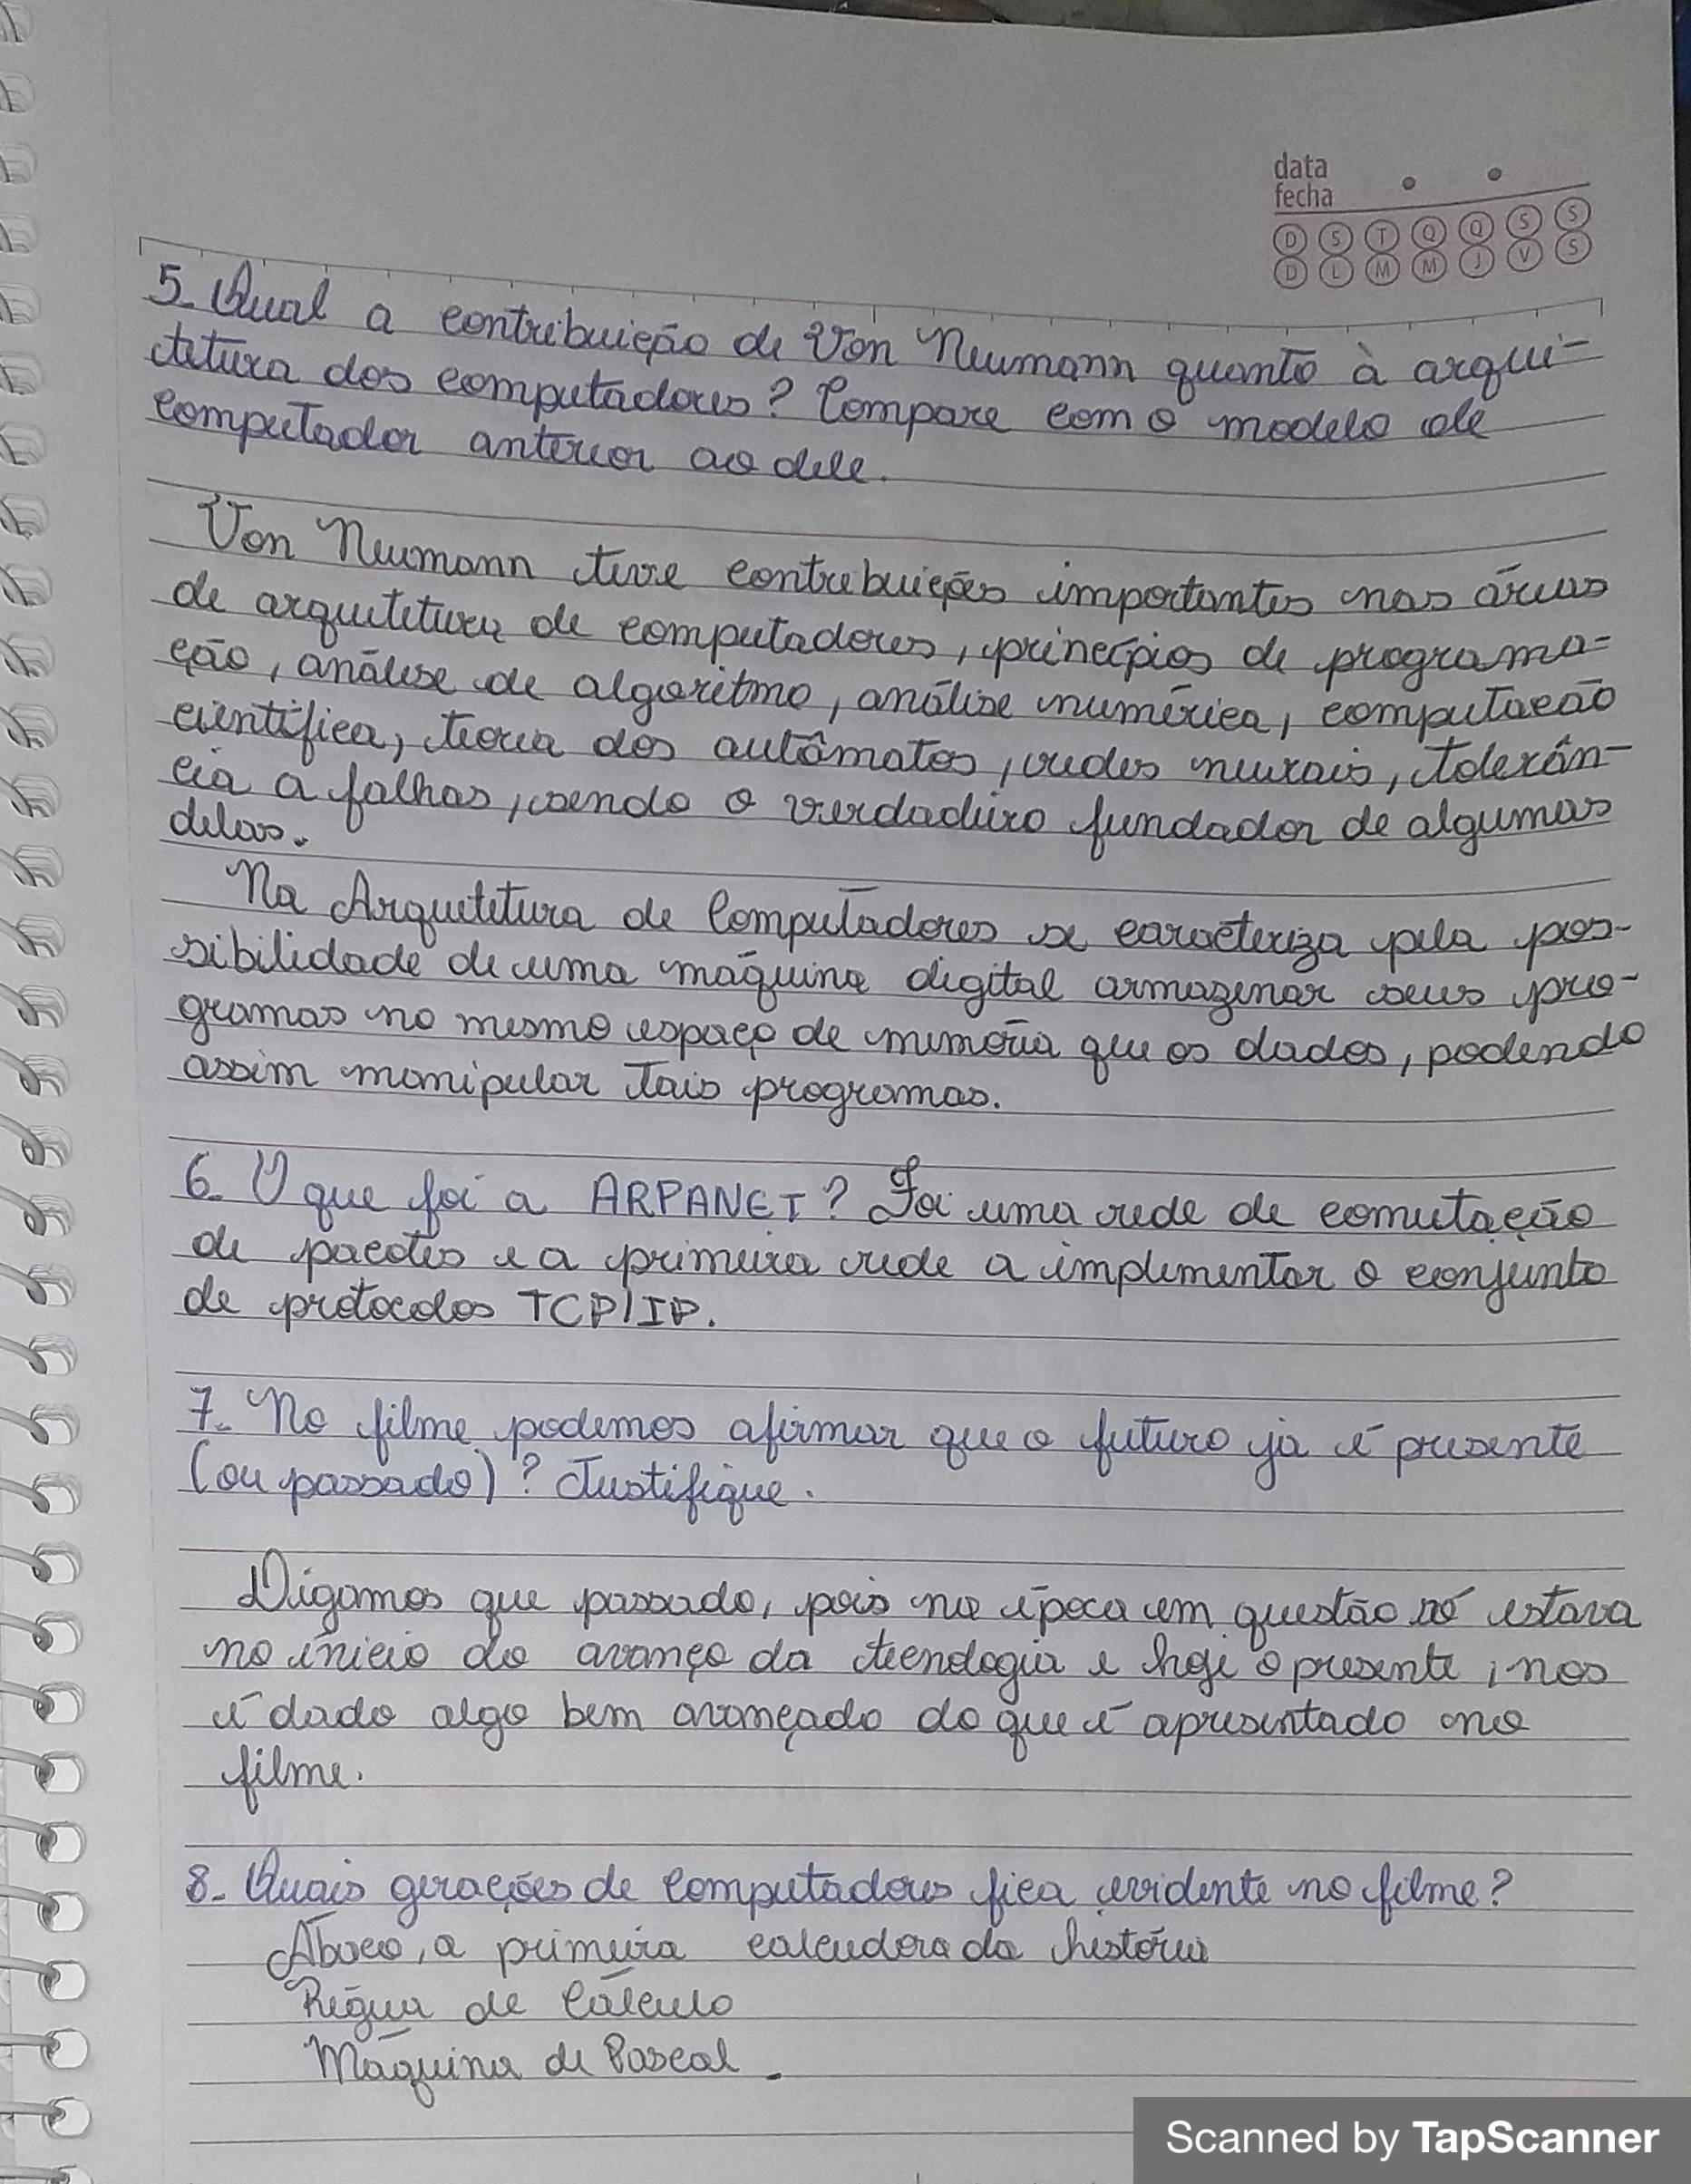 data
fecha
D S T Q Q S S
D L M M J V S
5. Qual a contribuição de Von Neumann quanto à arqui-
tetura dos computadores? Compare com o modelo de
computador anterior ao dele.
Von Neumann teve contribuições importantes nas áreas
de arquitetura de computadores, princípios de programa=
ção, análise de algoritmo, análise numérica, computacão
científica, teoria dos autômatos, redes neurais, tolerân-
cia a falhas, sendo o verdadeiro fundador de algumas
delas.
Na Arquitetura de Computadores se caracteriza pela pos-
sibilidade de uma máquina digital armazenar seus pro-
gramas no mesmo espaço de memória que os dados, podendo
assim manipular tais programas.
6. O que foi a ARPANET? Foi uma rede de comutação
de pacotes e a primeira rede a implementar o conjunto
de protocolos TCP/IP.
7. No filme podemos afirmar que o futuro já é presente
(ou passado)? Justifique.
Digamos que passado, pois na época em questão só estava
no início do avanço da tecnologia e hoje o presente, nos
é dado algo bem avançado do que é apresentado no
filme.
8. Quais gerações de computadores fica evidente no filme?
Ábaco, a primeira calcudora da história
Régua de Cálculo
Máquina de Pascal.
Scanned by TapScanner